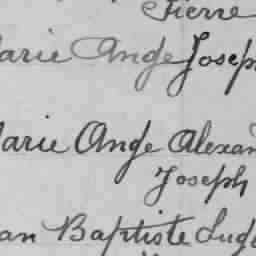 Pierre
arie Ange Joseph
arie Ange Alexan
Joseph
an Baptiste Ludg